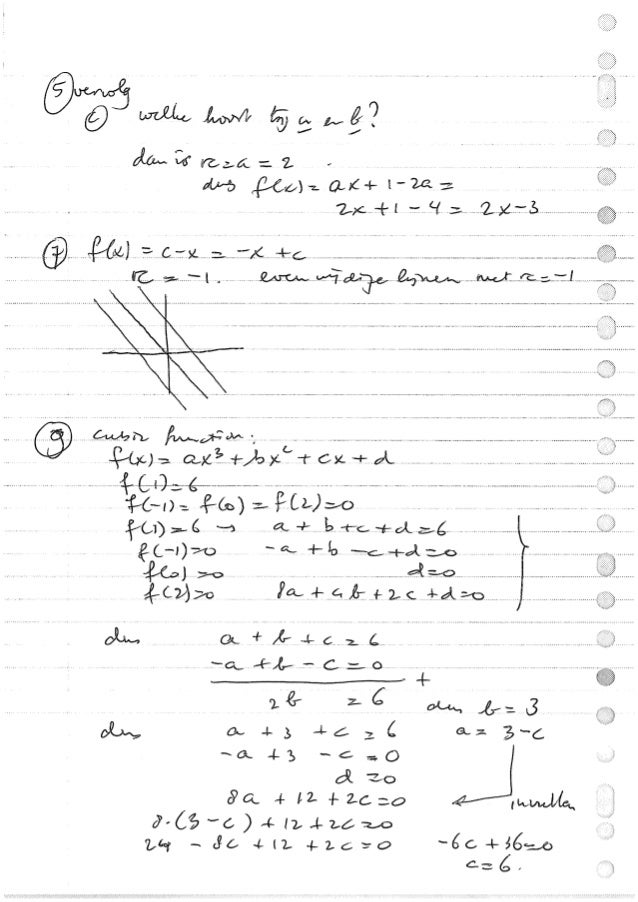 5 vervolg
c) welke hoort bij a en b?
dan is rc=a = 2
dus f(x) = ax + 1-2a =
2x + 1 - 4 = 2x-3
7 f(x) = c-x = -x + c
rc = -1. evenwijdige lijnen met rc=-1
9 cubic function:
f(x) = ax³ + bx² + cx + d
f(1)=6
f(-1) = f(0) = f(2)=0
f(1)=6 → a + b + c + d = 6
f(-1)=0 -a + b - c + d = 0
f(0)=0 d=0
f(2)=0 8a + 4b + 2c + d = 0
dus a + b + c = 6
-a + b - c = 0
+
2b = 6 dus b = 3
dus a + 3 + c = 6 a = 3-c
-a + 3 - c = 0
d = 0
8a + 12 + 2c = 0 ← invullen
8·(3-c) + 12 + 2c = 0
24 - 8c + 12 + 2c = 0 -6c + 36=0
c=6.